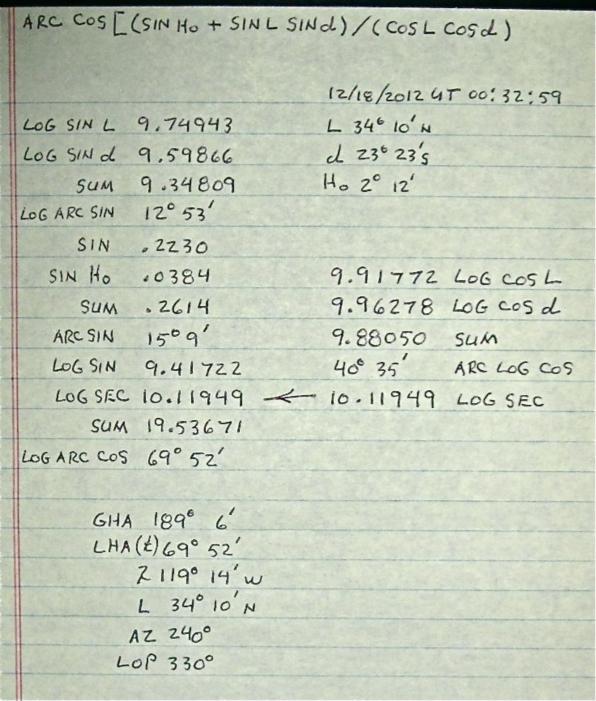 ARC COS [(SIN Ho + SIN L SIN d) / (COS L COS d)
12/18/2012 UT 00:32:59
LOG SIN L 9.74943 L 34° 10' N
LOG SIN d 9.59866 d 23° 23' S
SUM 9.34809 Ho 2° 12'
LOG ARC SIN 12° 53'
SIN .2230
SIN Ho .0384 9.91772 LOG COS L
SUM .2614 9.96278 LOG COS d
ARC SIN 15° 9' 9.88050 SUM
LOG SIN 9.41722 40° 35' ARC LOG COS
LOG SEC 10.11949 ← 10.11949 LOG SEC
SUM 19.53671
LOG ARC COS 69° 52'
GHA 189° 6'
LHA (t) 69° 52'
λ 119° 14' W
L 34° 10' N
AZ 240°
LOP 330°